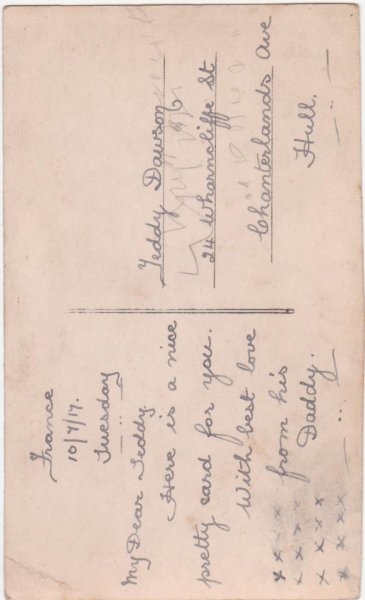 France
10/7/17.
Tuesday
My Dear Teddy.
Here is a nice
pretty card for you.
With best love
from his
Daddy.
x x x x
x x x x
x x x x
x x x x
Teddy Dawson
24 Wharncliffe St
Chanterlands Ave
Hull.